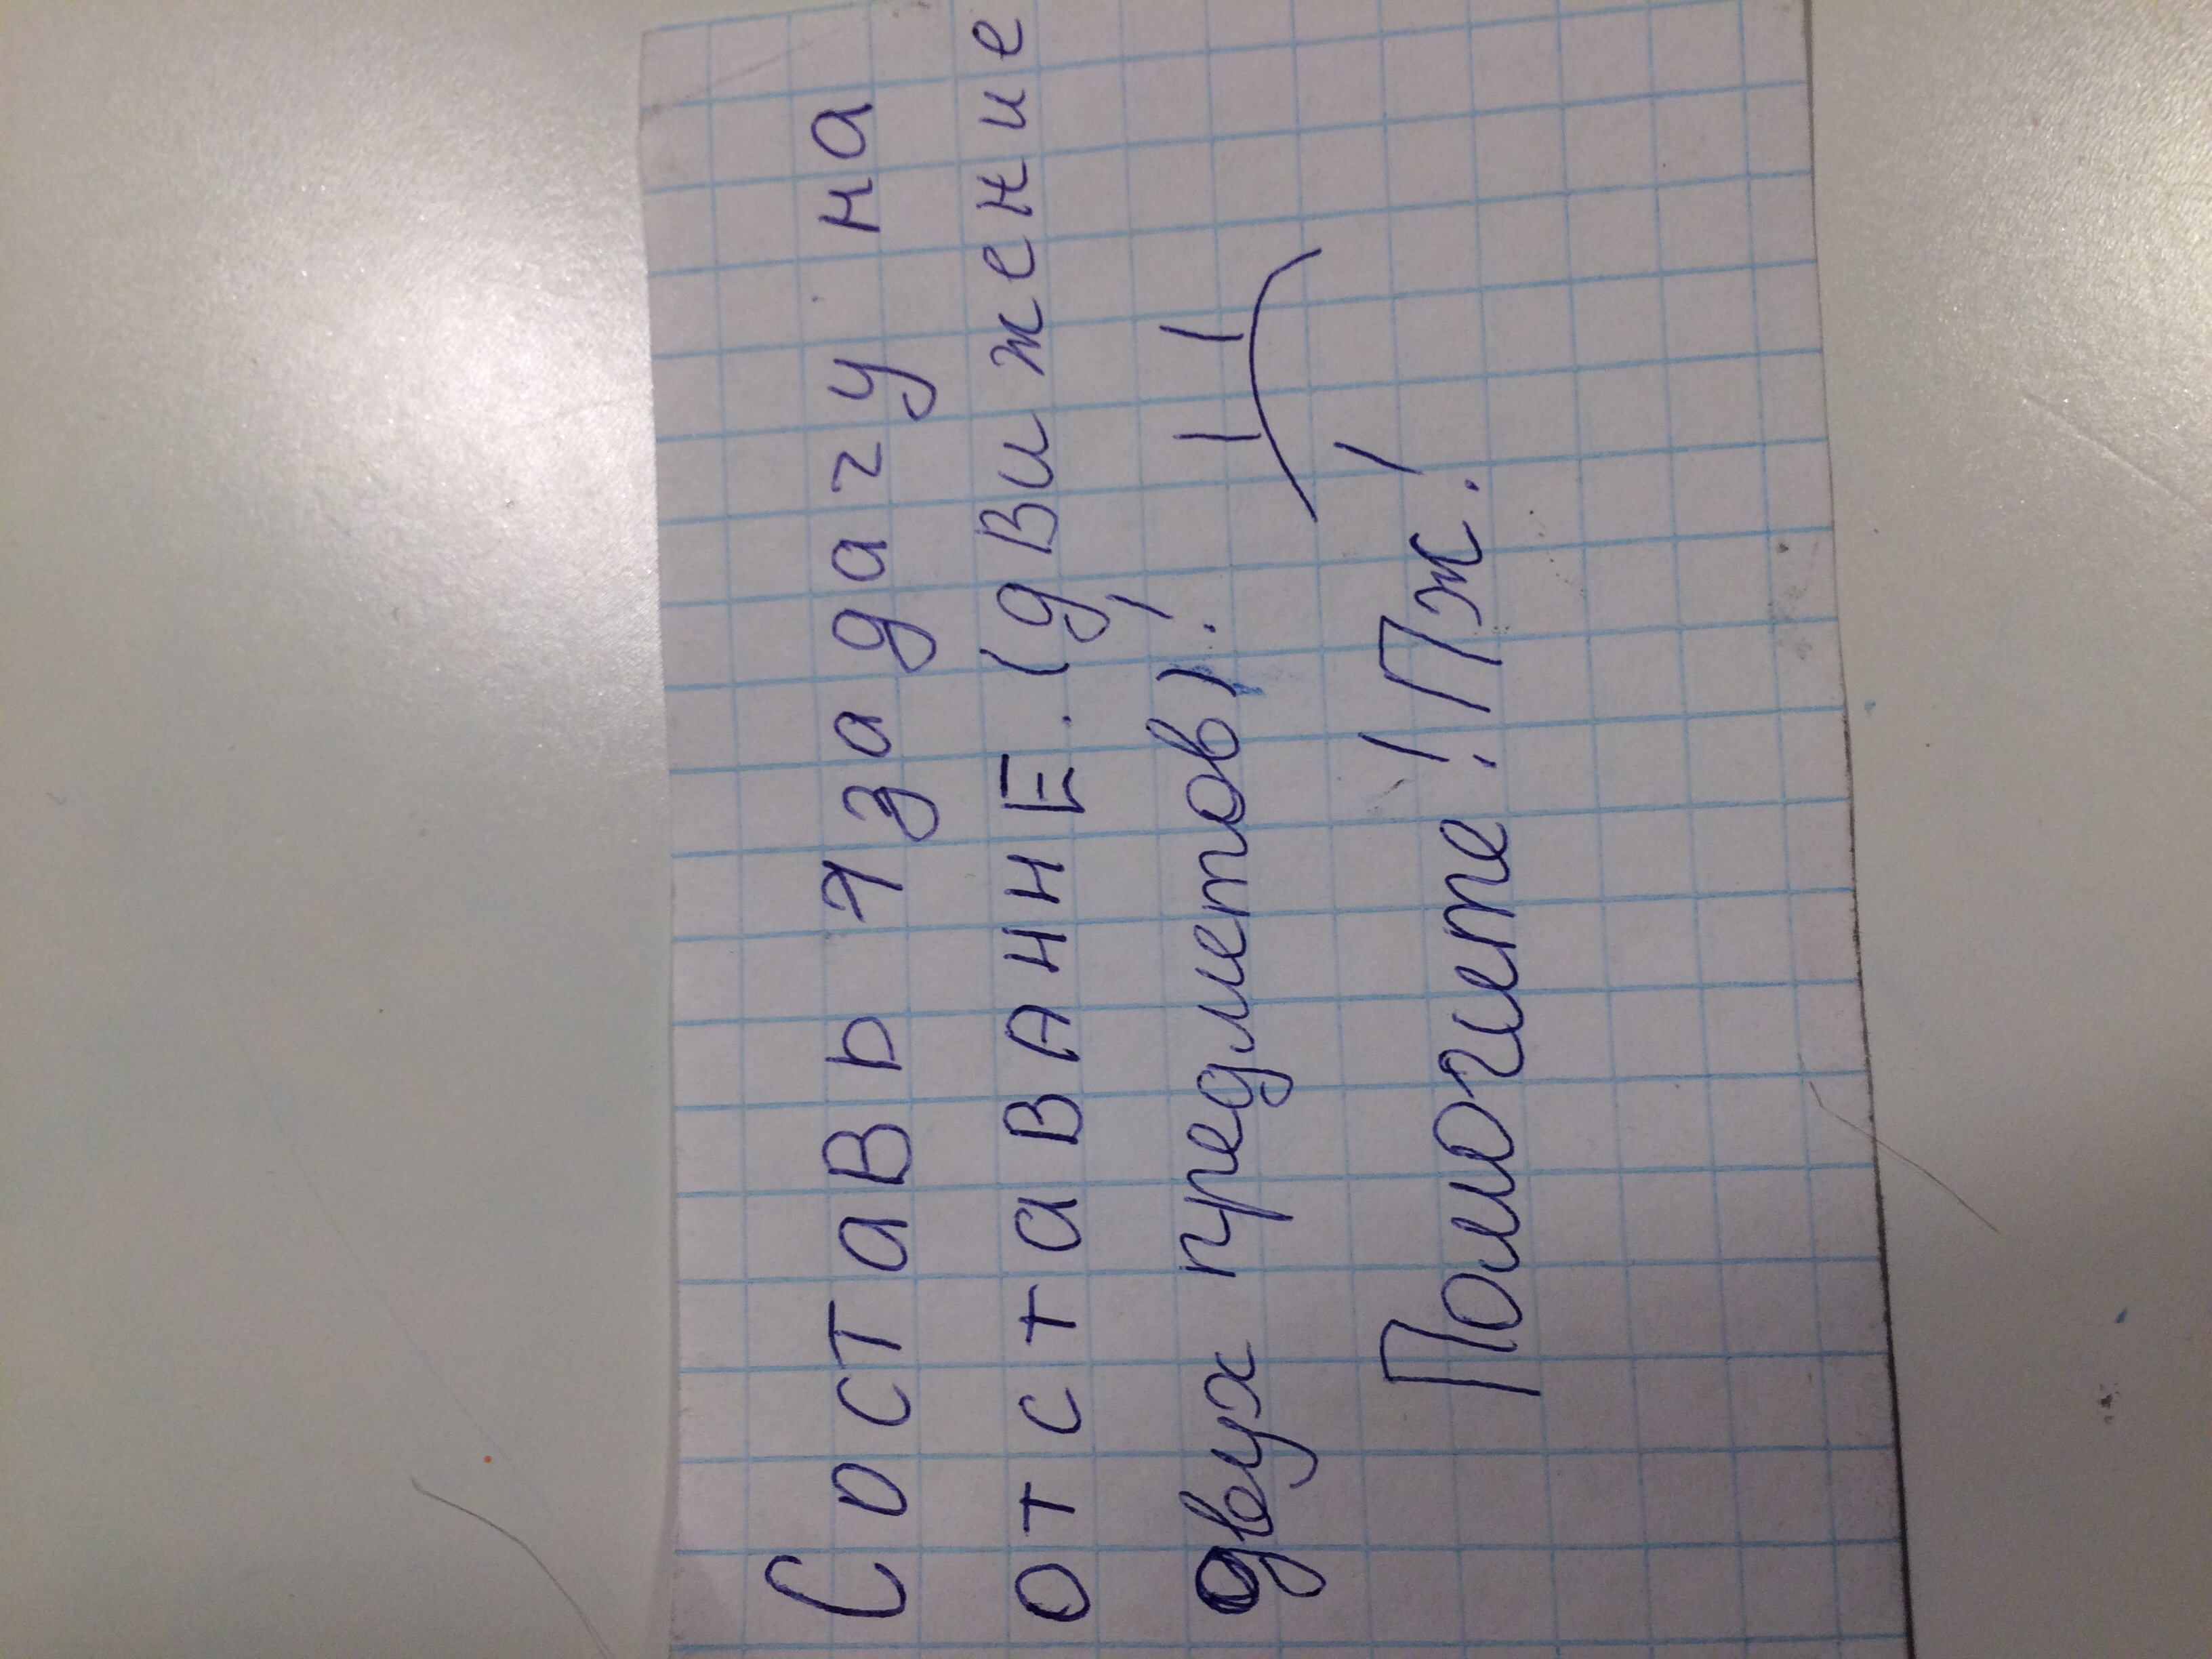 Составь 1 задачу на
отставаннЕ. (движение
двух предметов)!
Помогите! Пж!